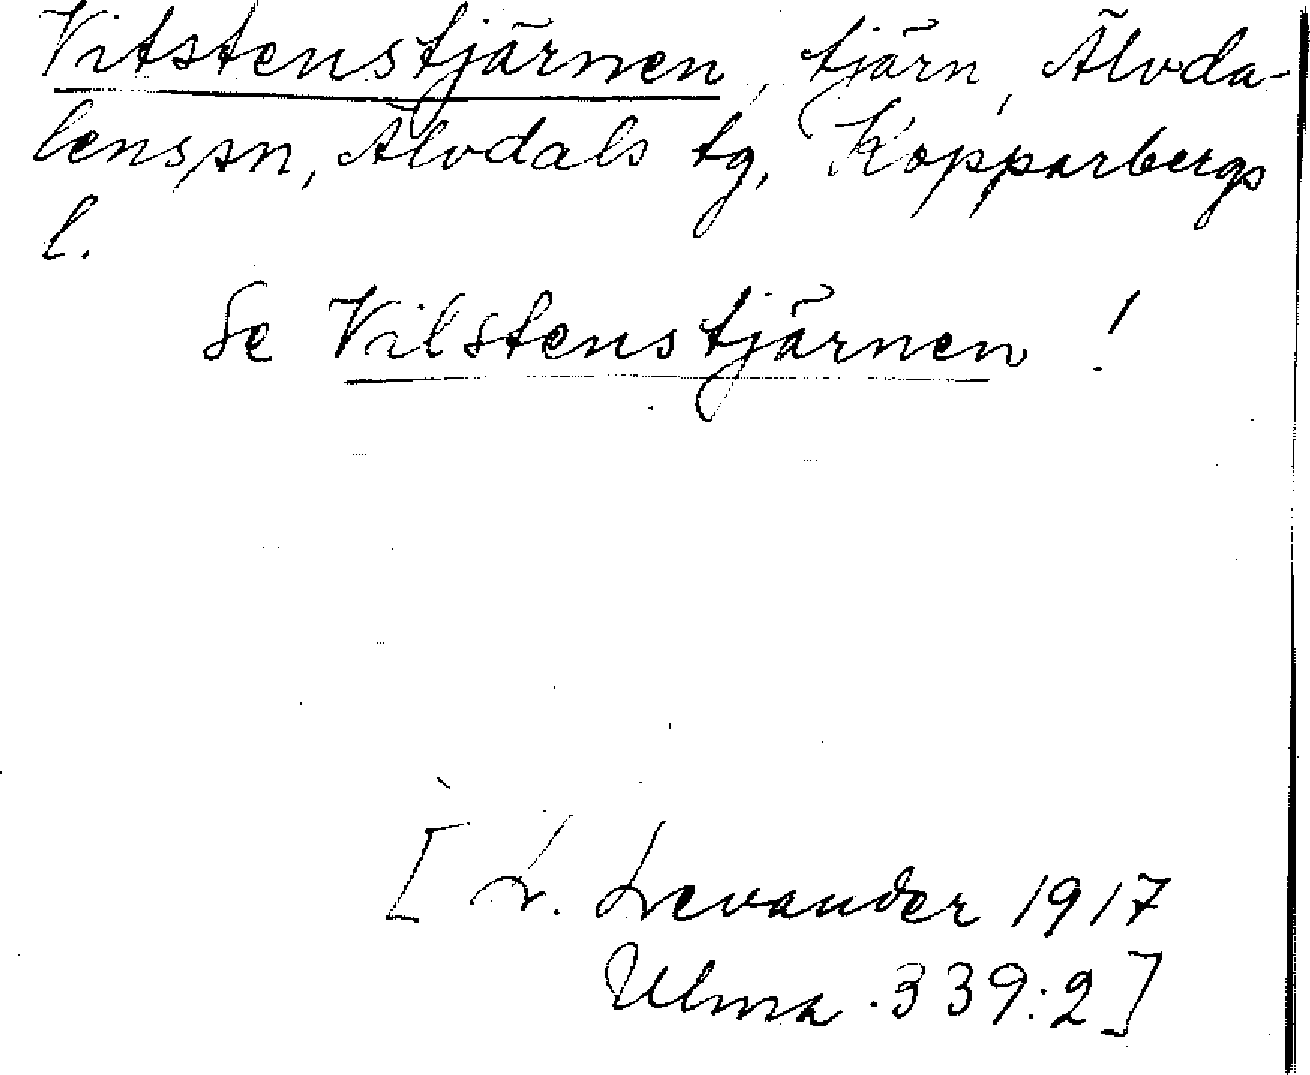 Vitstenstjärnen, tjärn, Älvda-
lens sn, Älvdals tg, Kopparbergs
l.
Se Vilstenstjärnen!
[L. Levander 1917
Ulma 339:2]